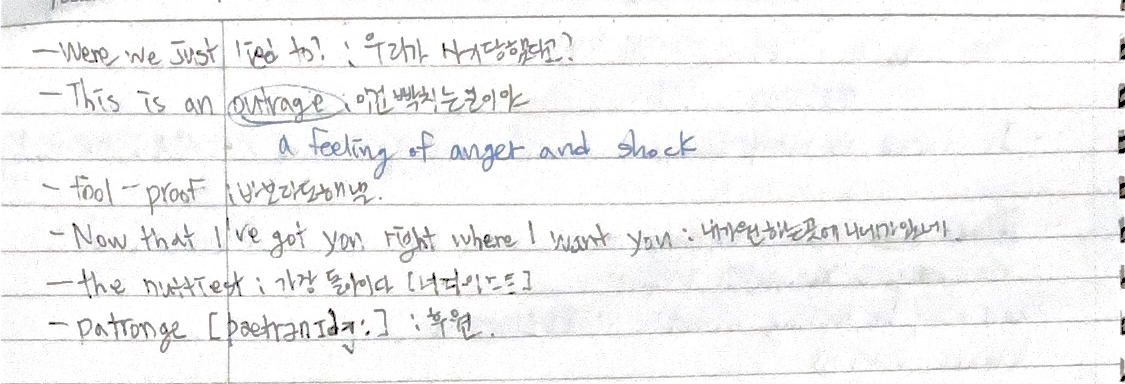 - Were we just lied to? : 우리가 사기당했다고?
- This is an outrage : 이건 빡치는일이야
a feeling of anger and shock
- fool-proof : 바보라도해냄.
- Now that I've got you right where I want you : 내가원하는곳에 니네가있네.
- the nuttiest : 가장 돌아이다 [너티이스트]
- patronge [pætranɪdʒ:] : 후원.